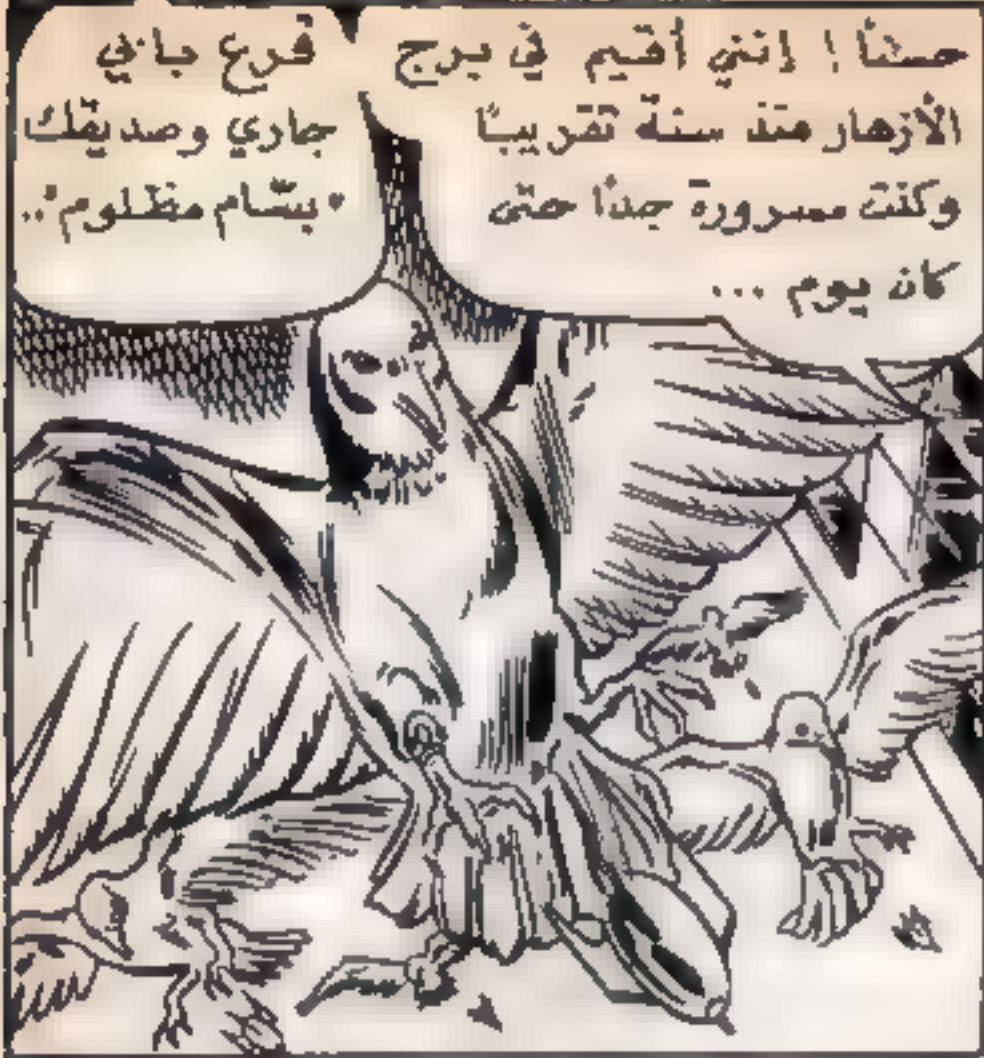 حسنًا ! إنني أقيم في برج
الأزهار منذ سنة تقريبًا
وكنت مسرورة جدًا حتى
كان يوم ...
قرع بابي
جاري وصديقك
"بسّام مظلوم"..